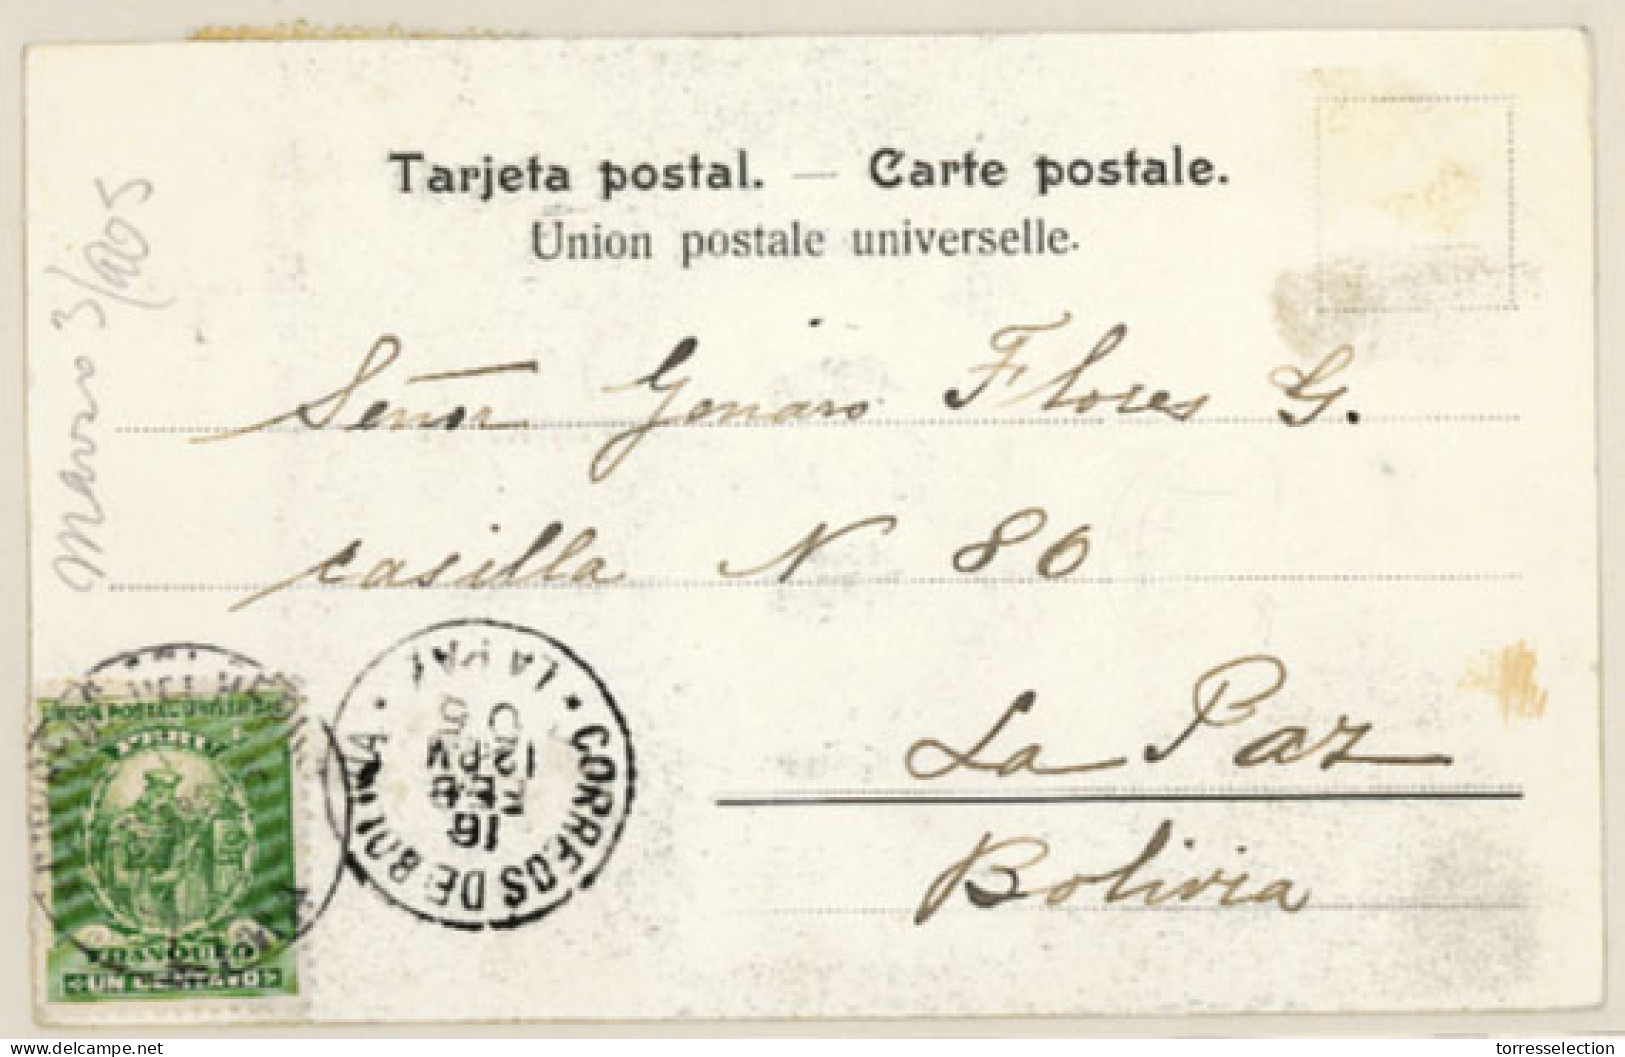 Tarjeta postal. — Carte postale.
Union postale universelle.
Señor Genaro Flores G.
casilla N 80
La Paz
Bolivia
Marzo 3/905
UNION POSTAL UNIVERSAL
PERU
FRANQUEO
UN CENTAVO
CORREOS DE BOLIVIA
LA PAZ
16
12 M
delcampe.net
torresselection